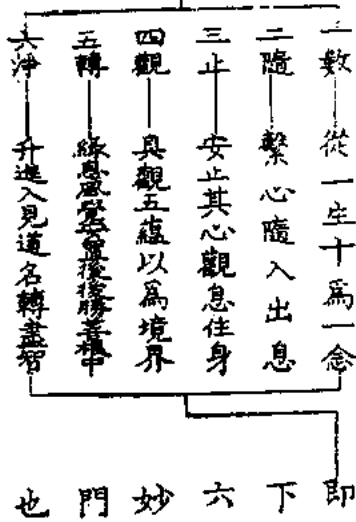 一數 從一至十為一念
二隨 繫心隨入出息
三止 安止其心觀息住身
四觀 具觀五蘊以為境界
五轉 緣息風覺安置後後勝善根中
六淨 升進入見道名轉盡智
即下六妙門也